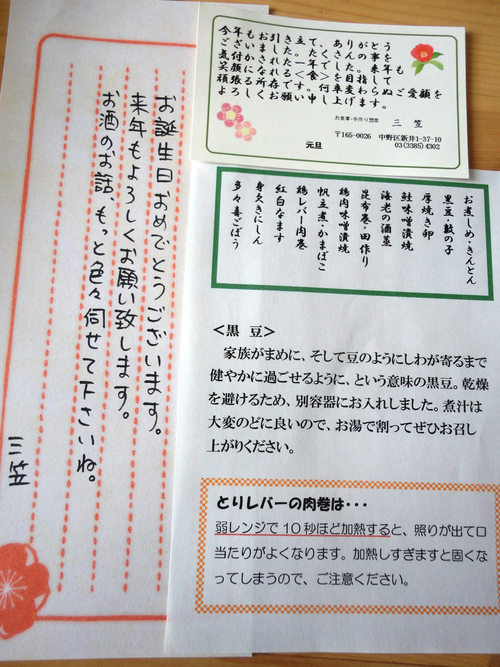 お誕生日おめでとうございます。
来年もよろしくお願い致します。
お酒のお話、もっと色々伺せて下さいね。
三笠
今年もお引き立て、ありがとう
ございました。たくさんの事を
気付かされた一年でした。来年も
笑顔になれる<食>を目指して
頑張る所存です。何卒変わらぬご愛顧を
よろしくお願い申し上げます。
お食事・手作り惣菜 三 笠
〒165-0026 中野区新井1-37-10
元旦 03(3385)4302
お煮しめ・きんとん
黒豆・数の子
厚焼き卵
鮭味噌漬焼
海老の酒蒸
昆布巻・田作り
鶏肉味噌漬焼
帆立煮・かまぼこ
鶏レバー肉巻
紅白なます
身欠きにしん
多々喜ごぼう
<黒 豆>
家族がまめに、そして豆のようにしわが寄るまで
健やかに過ごせるように、という意味の黒豆。乾燥
を避けるため、別容器にお入れしました。煮汁は
大変のどに良いので、お湯で割ってぜひお召し
上がりください。
とりレバーの肉巻は・・・
弱レンジで10秒ほど加熱すると、照りが出て口
当たりがよくなります。加熱しすぎますと固くな
ってしまうので、ご注意ください。